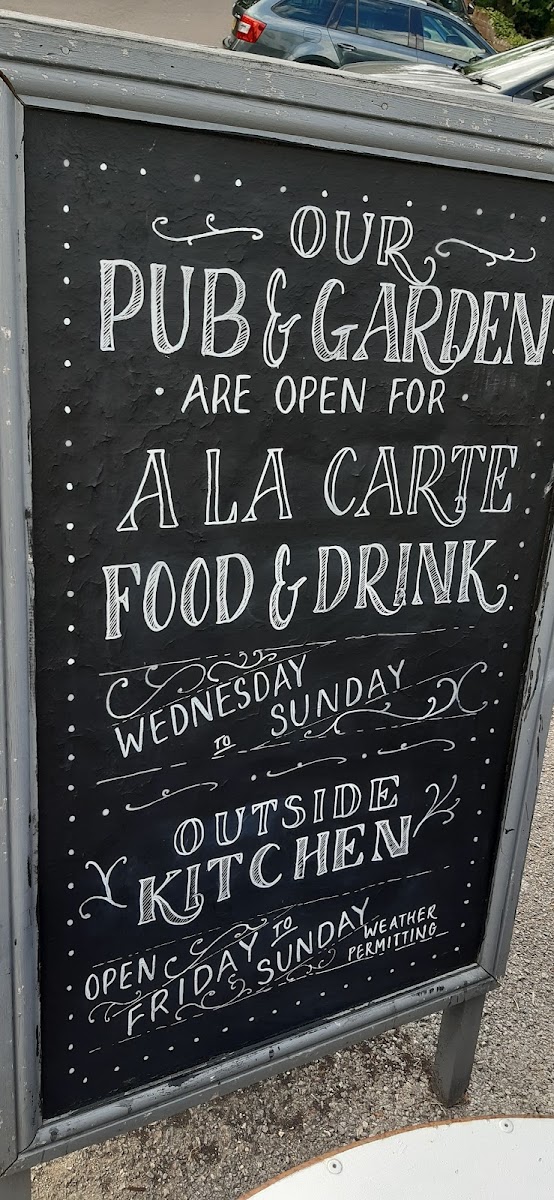 OUR
PUB & GARDEN
ARE OPEN FOR
A LA CARTE
FOOD & DRINK
WEDNESDAY
TO SUNDAY
OUTSIDE
KITCHEN
OPEN
FRIDAY TO
SUNDAY
WEATHER
PERMITTING